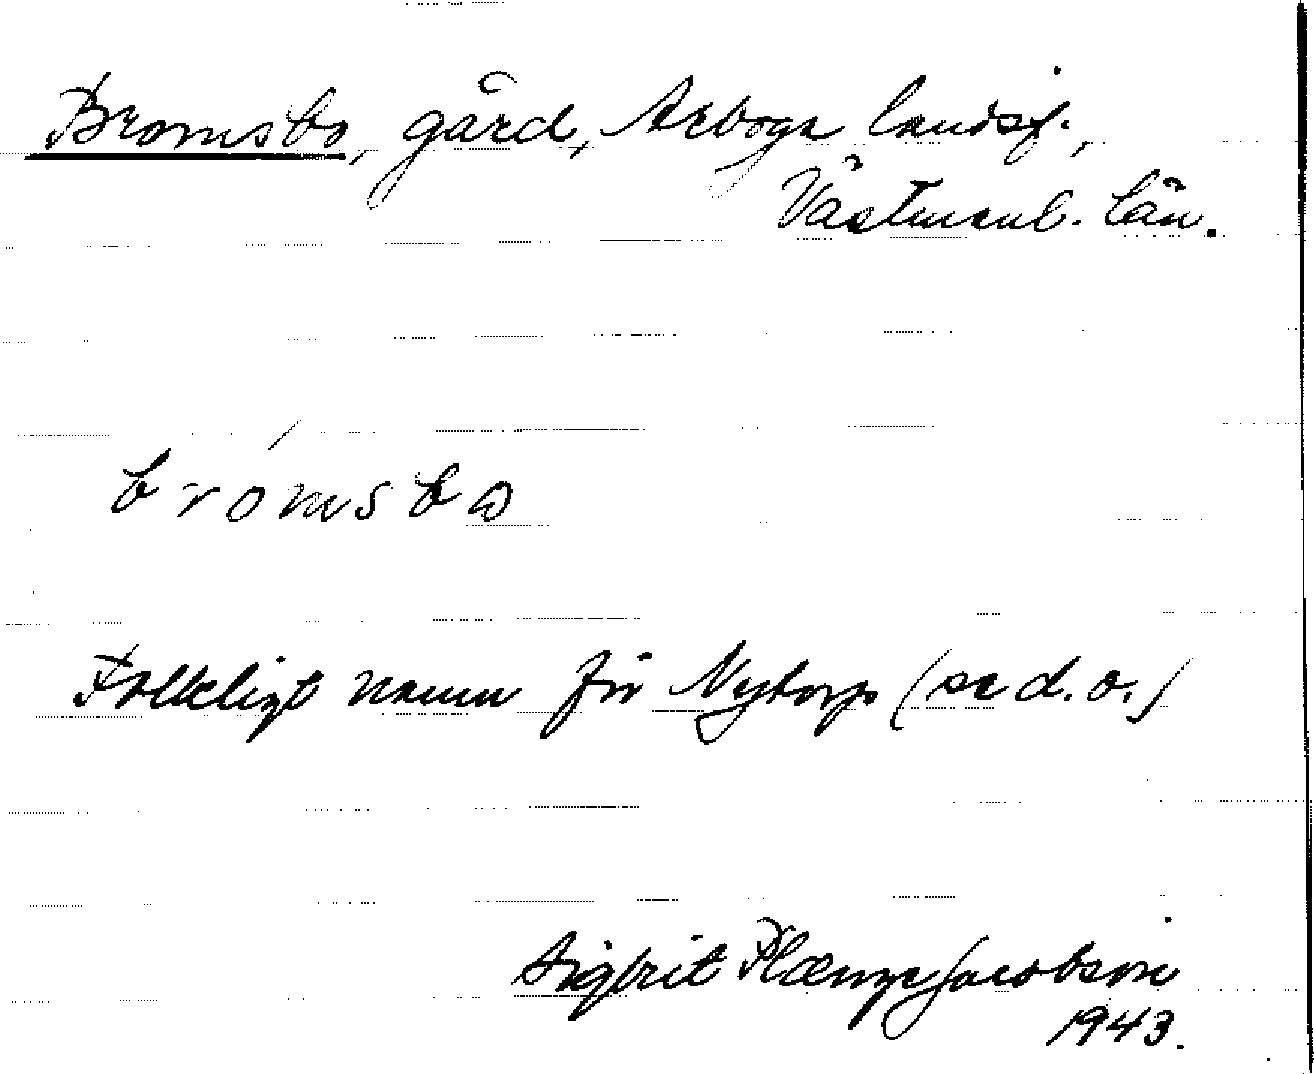 Bromsbo, gård, Arboga landsf.,
Västmanl. län.
brómsbω
Folkligt namn för Nytorp (se d.o.)
Sigbrit Plænge Jacobson
1943.